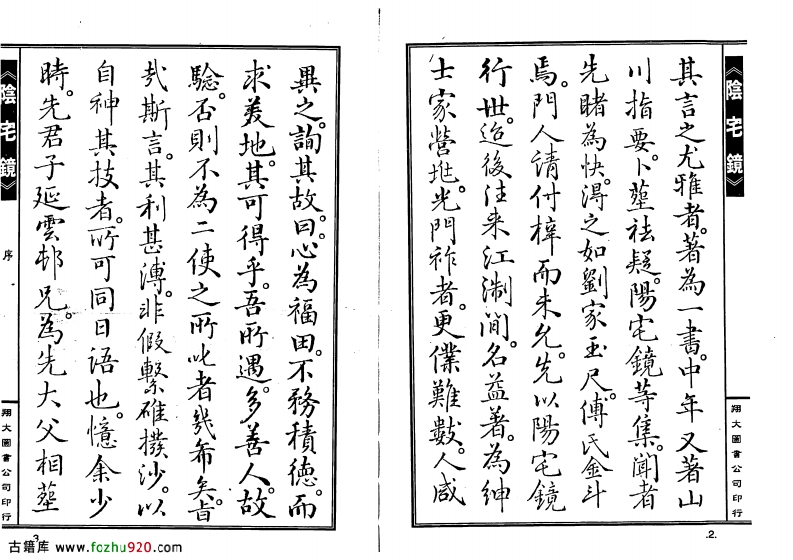 《陰宅鏡》
其言之尤雅者。著為一書。中年又著山
川指要。卜塟祛疑。陽宅鏡等集。聞者
先睹為快。得之如劉家玉尺。傅氏金斗
焉。門人請付梓而未允。先以陽宅鏡
行世。迨後往来江淛間。名益著。為紳
士家營兆。光門祚者。更僕難數。人咸
翔大圖書公司印行
.2.
《陰宅鏡》
序
異之。詢其故。曰。心為福田。不務積德。而
求美地。其可得乎。吾所遇。多善人。故
驗。否則不為二使之所叱者幾希矣。旨
㦲斯言。其利甚溥。非假繫碓撲沙。以
自神其技者。所可同日語也。憶余少
時。先君子延雲邨兄。為先大父相塟
翔大圖書公司印行
3
古籍库 www.fozhu920.com